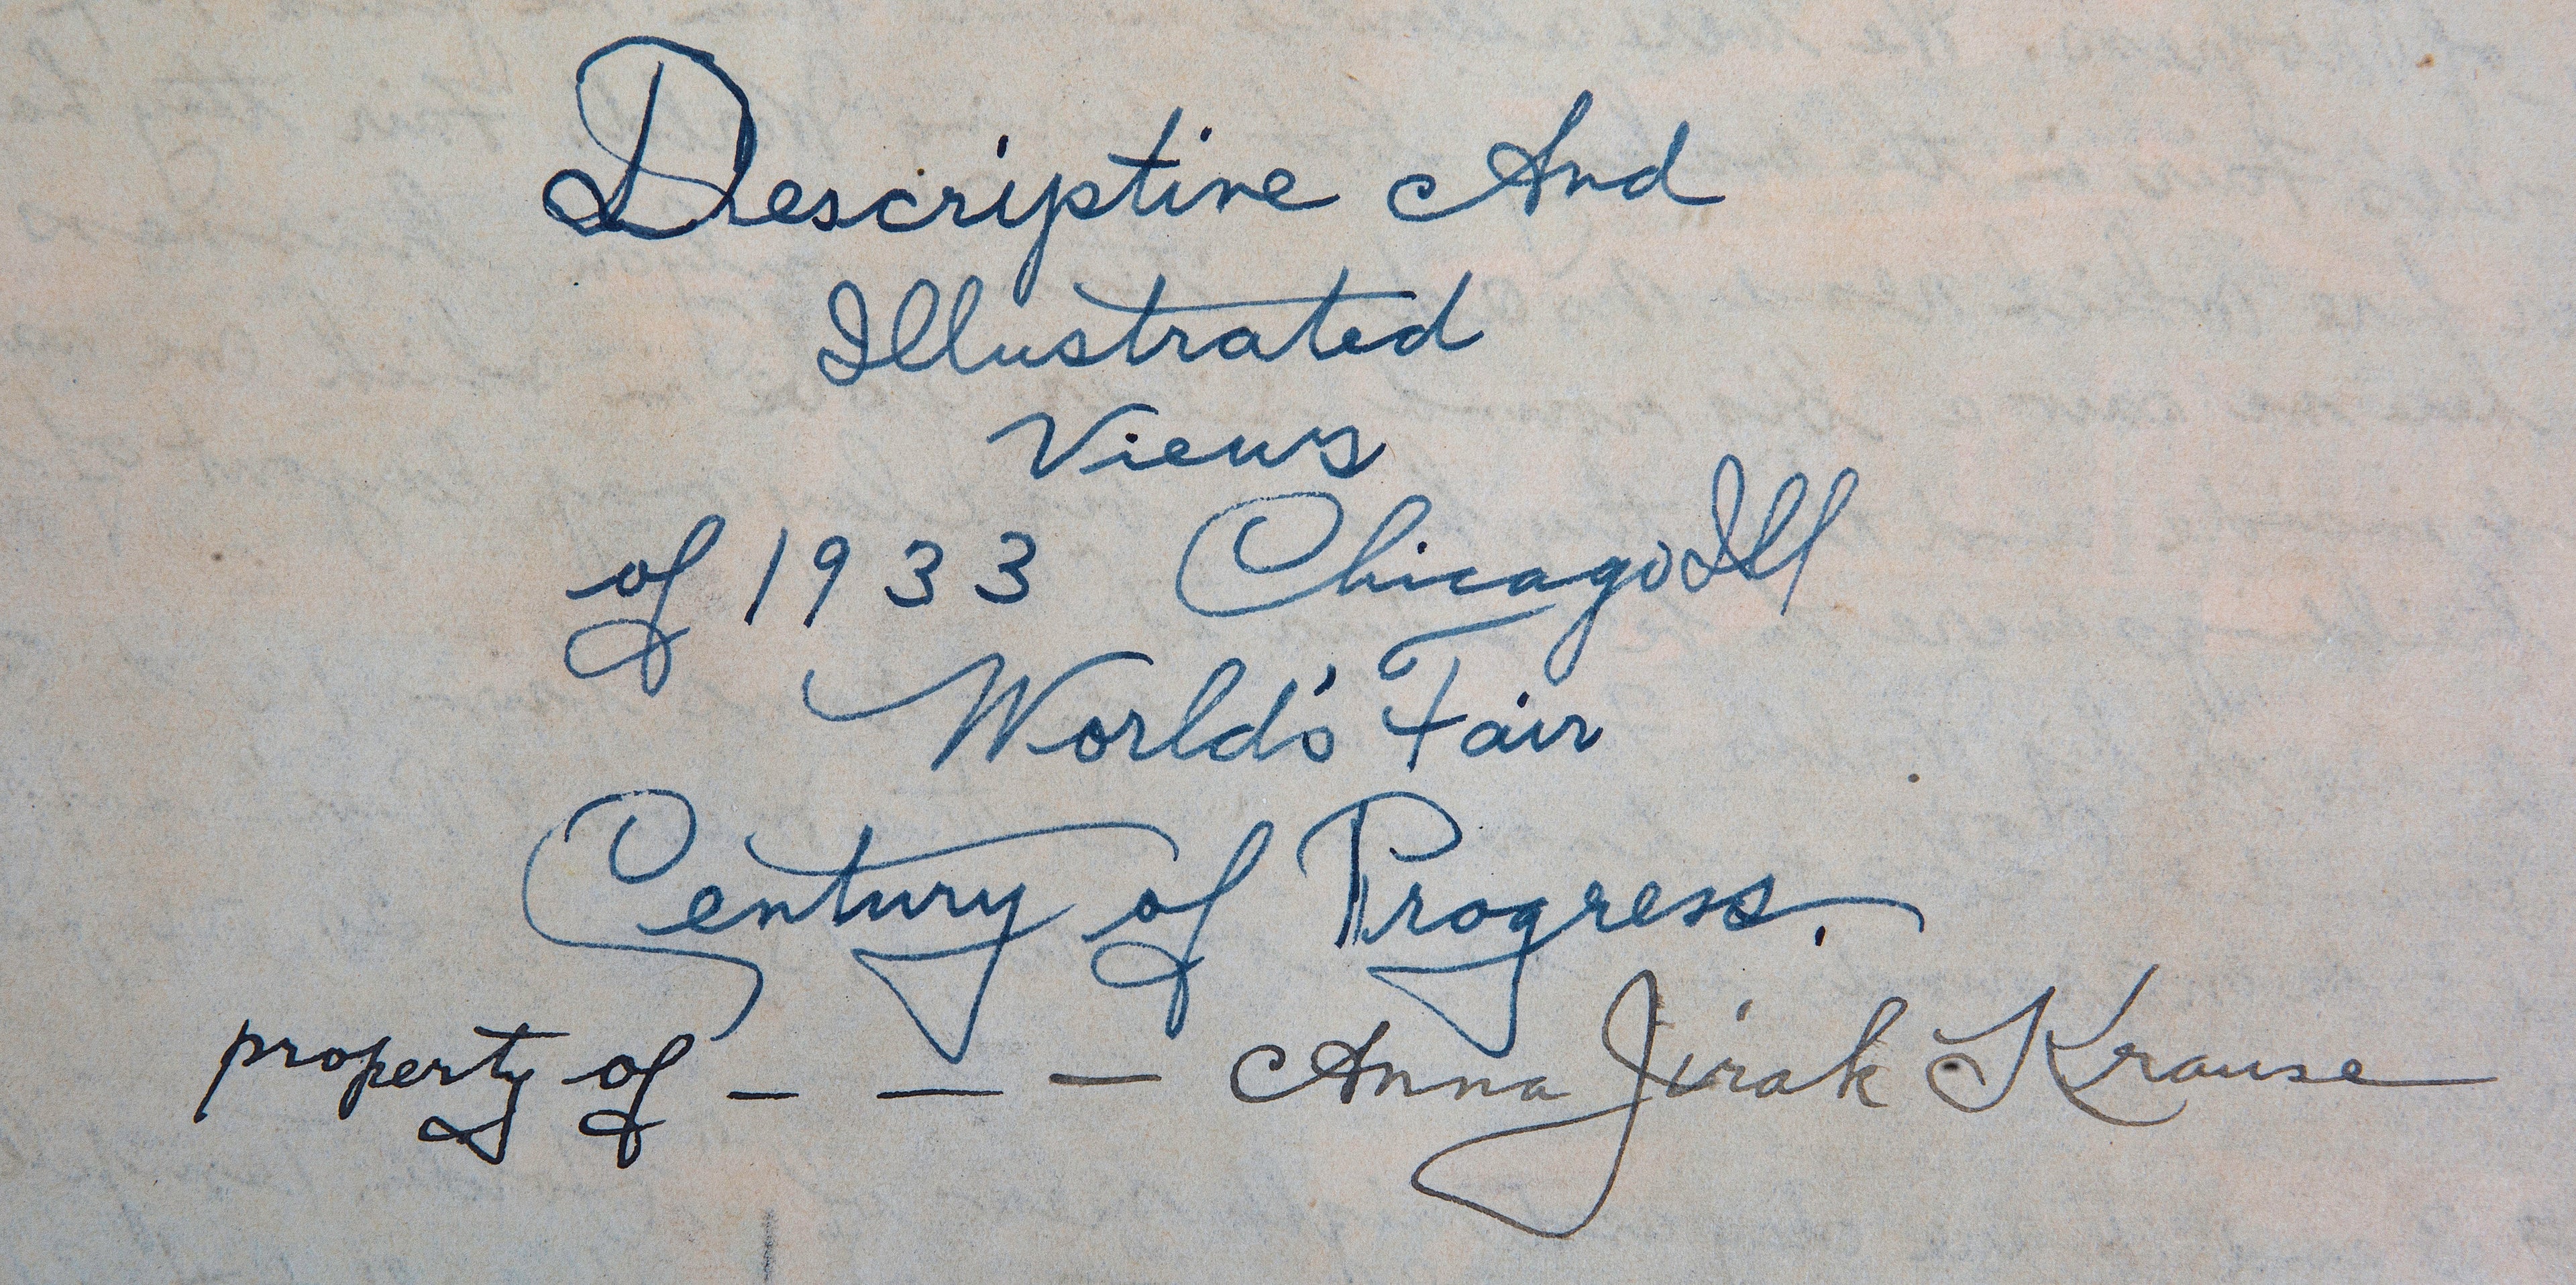 Descriptive And
Illustrated
Views
of 1933 Chicago Ill
World's Fair
Century of Progress.
property of - - - Anna Jirak Krause